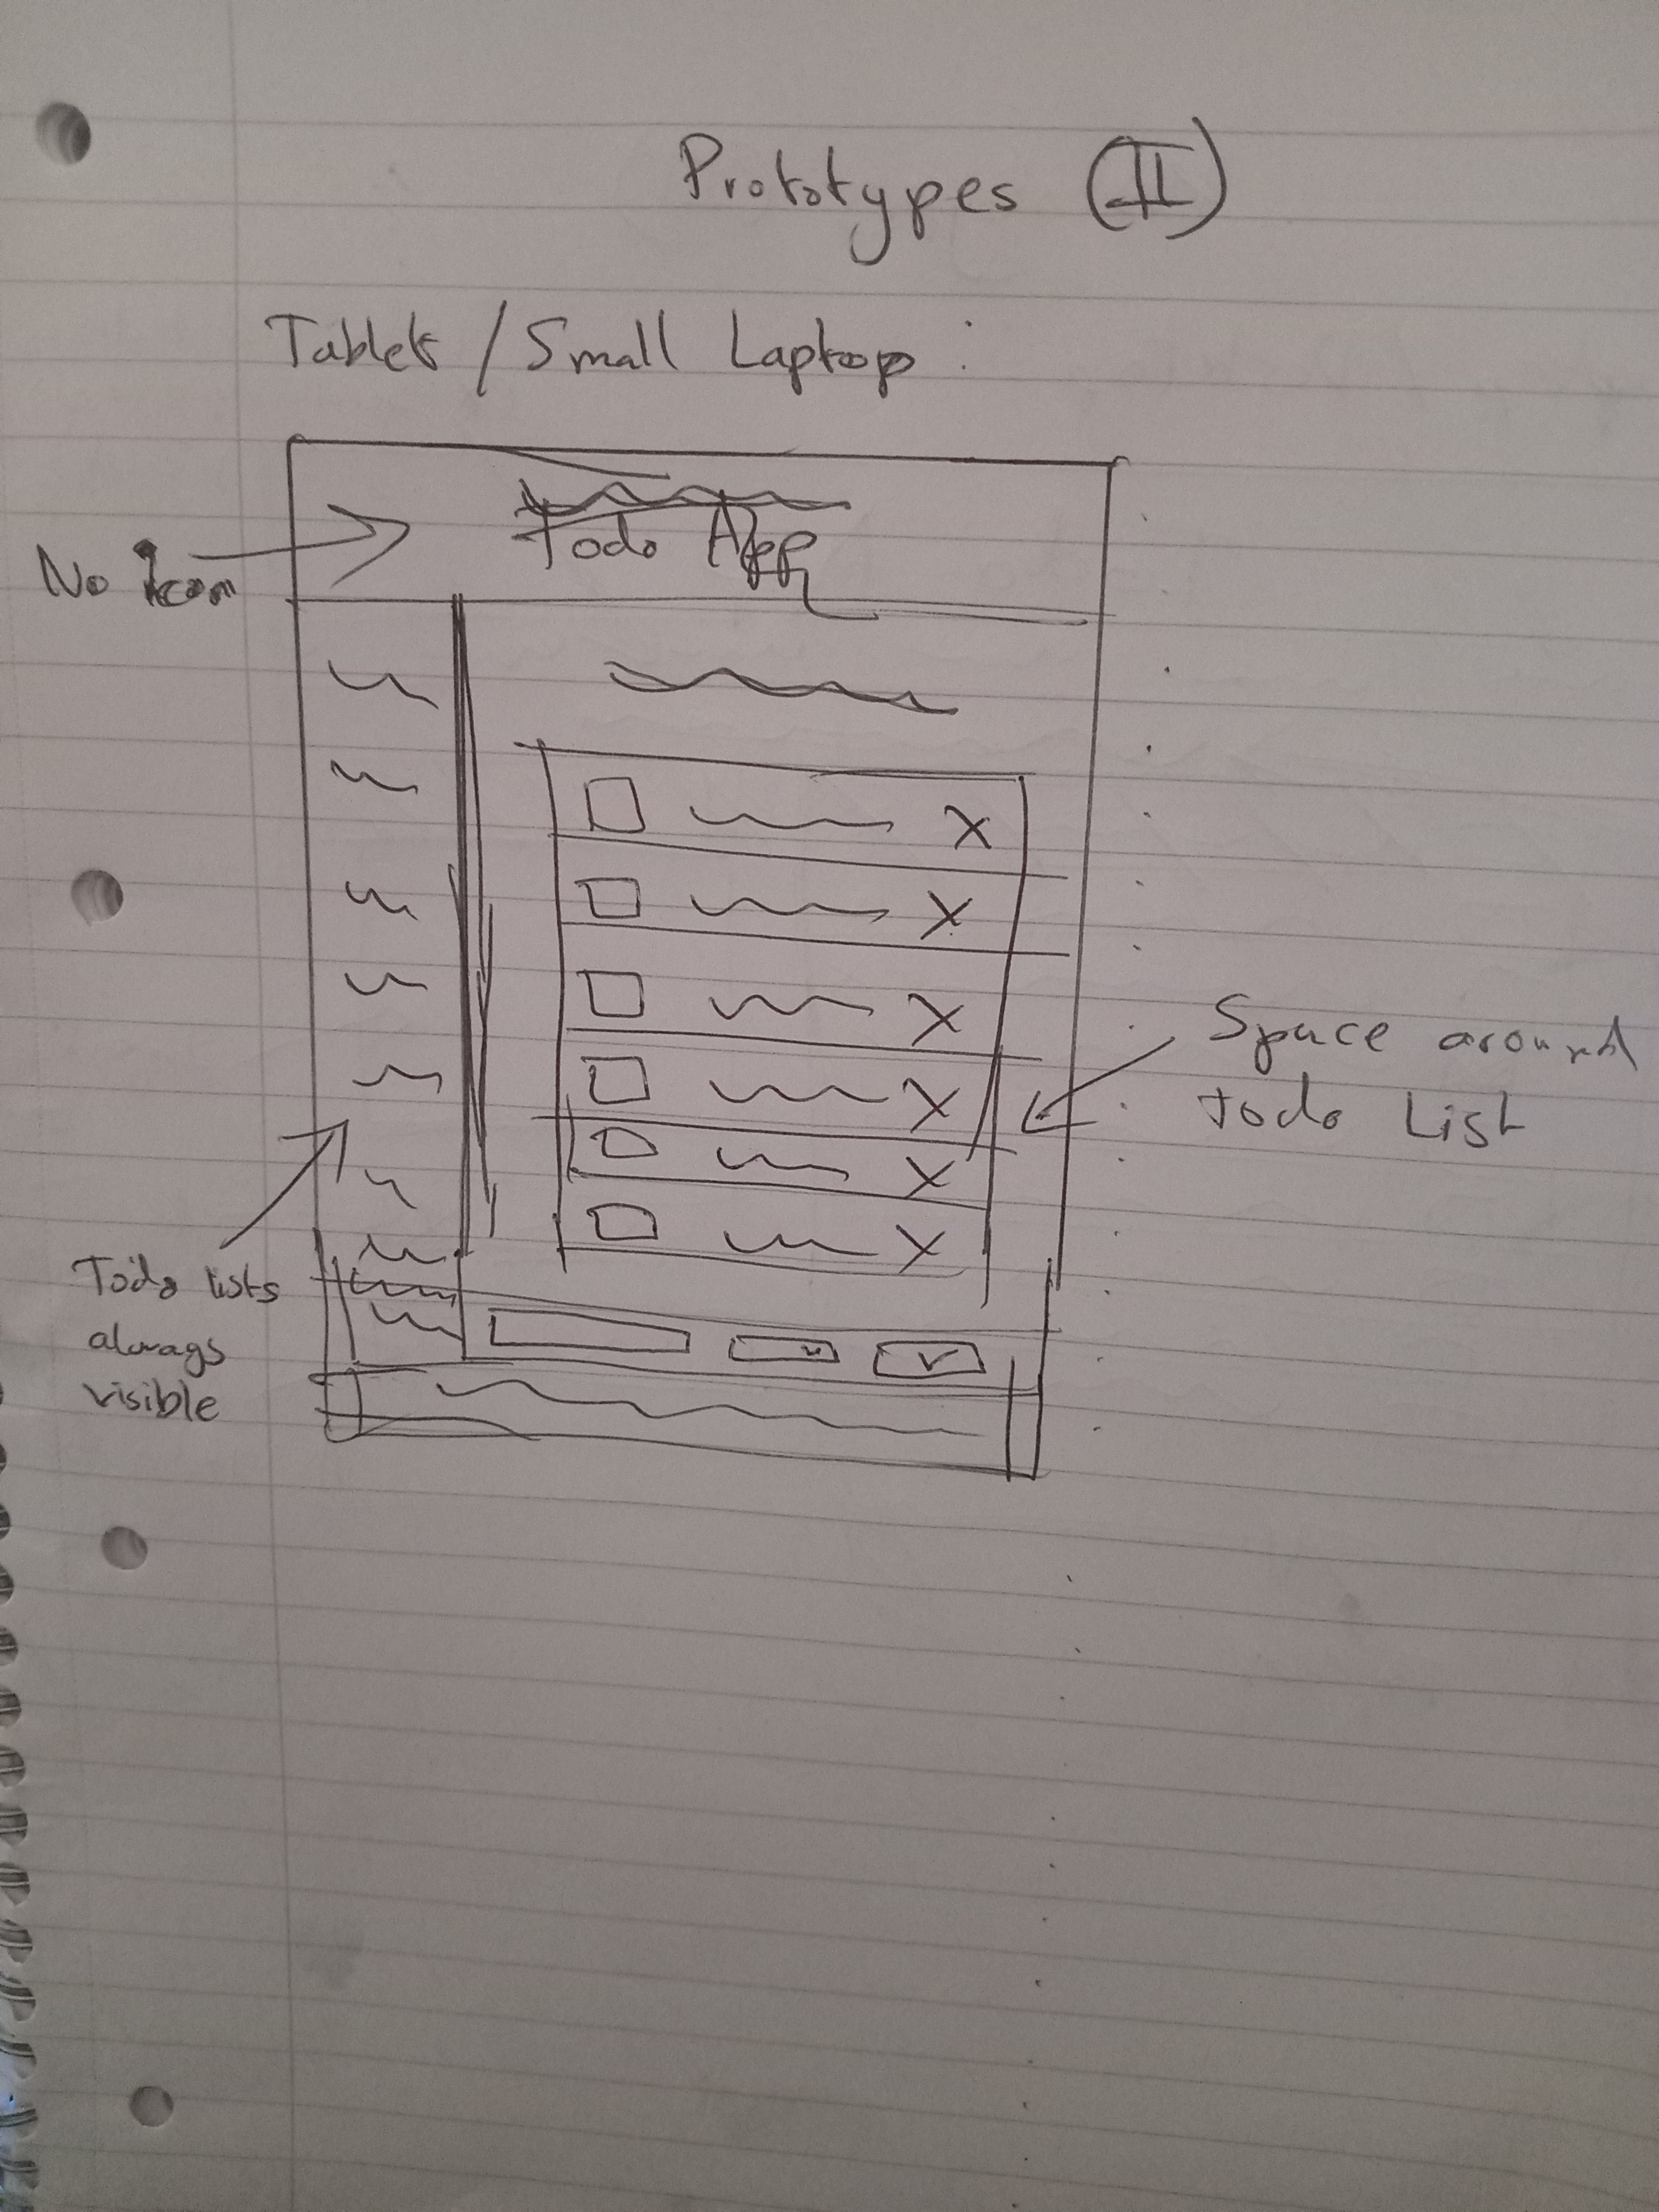 Prototypes (II)
Tablet / Small Laptop :
Todo App
No Icon
Space around
Todo List
Todo lists
always
visible